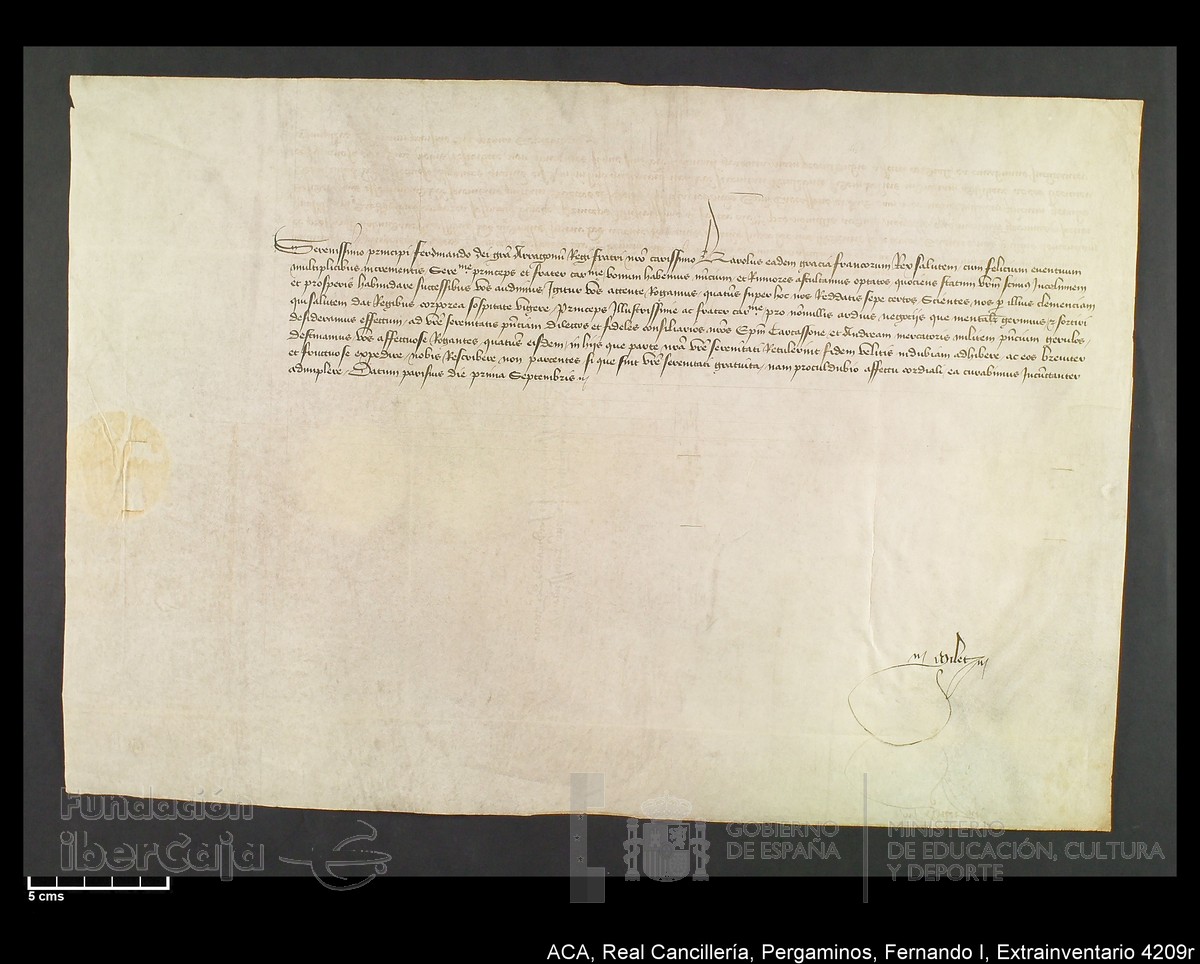 Serenissimo principi Ferdinando dei grã Arragonũ Regi fratri nrõ carissimo Karolus eadem gracia francorum Rex salutem cum felicium eventuum
multiplicibus incrementis Sereme princeps et frater carme bonum habemus nuncium et Rumores ascultamus optatos quociens statum vrm scimus Incolumem
et prosperis habundare successibus vos audimus Igitur vos attente Rogamus quatiñ super hoc nos Reddatis sepe certos Scientes nos p illius clemenciam
qui salutem dat Regibus corporea sospitate vigere Princeps Illustrissime ac frater carme pro nõnullis arduis negocijs que gerimus z sortiri
desideramus effectum ad vre serenitatis pñciam dilectos et fideles consiliarios nros Epm Carcassone et Andream mercatoris militem pñcium gerulos
destinamus vos affectuose Rogantes quatiñ eisdem in hijs que parte nra vre serenitati Retulerint fidem velitis indubiam adhibere ac eos breviter
et fructuose expedire nobis Rescribere non parcentes si que sint vre serenitati gratuita nam proculdubio affectu cordiali ea curabimus Incũctanter
adimplere Datum parisius die prima Septembris
Milet
Fundación
iberCaja
GOBIERNO
DE ESPAÑA
MINISTERIO
DE EDUCACIÓN, CULTURA
Y DEPORTE
5 cms
ACA, Real Cancillería, Pergaminos, Fernando I, Extrainventario 4209r